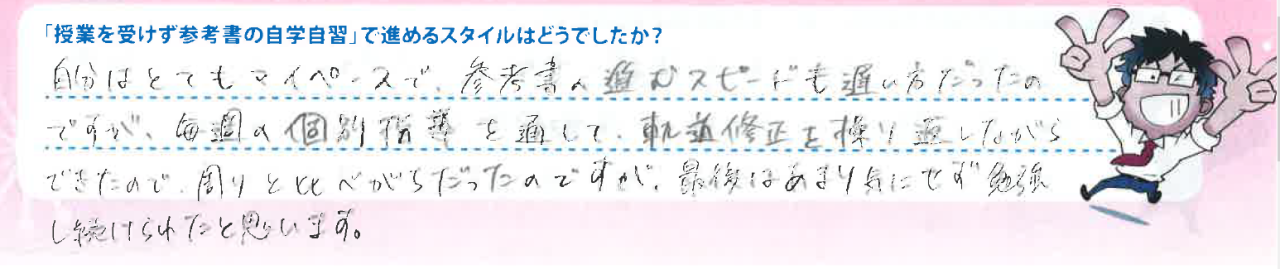 「授業を受けず参考書の自学自習」で進めるスタイルはどうでしたか？
自分はとてもマイペースで、参考書の進むスピードも遅い方だったの
ですが、毎週の個別指導を通して、軌道修正を繰り返しながら
できたので、周りと比べがちだったのですが、最後はあまり気にせず勉強
し続けられたと思います。